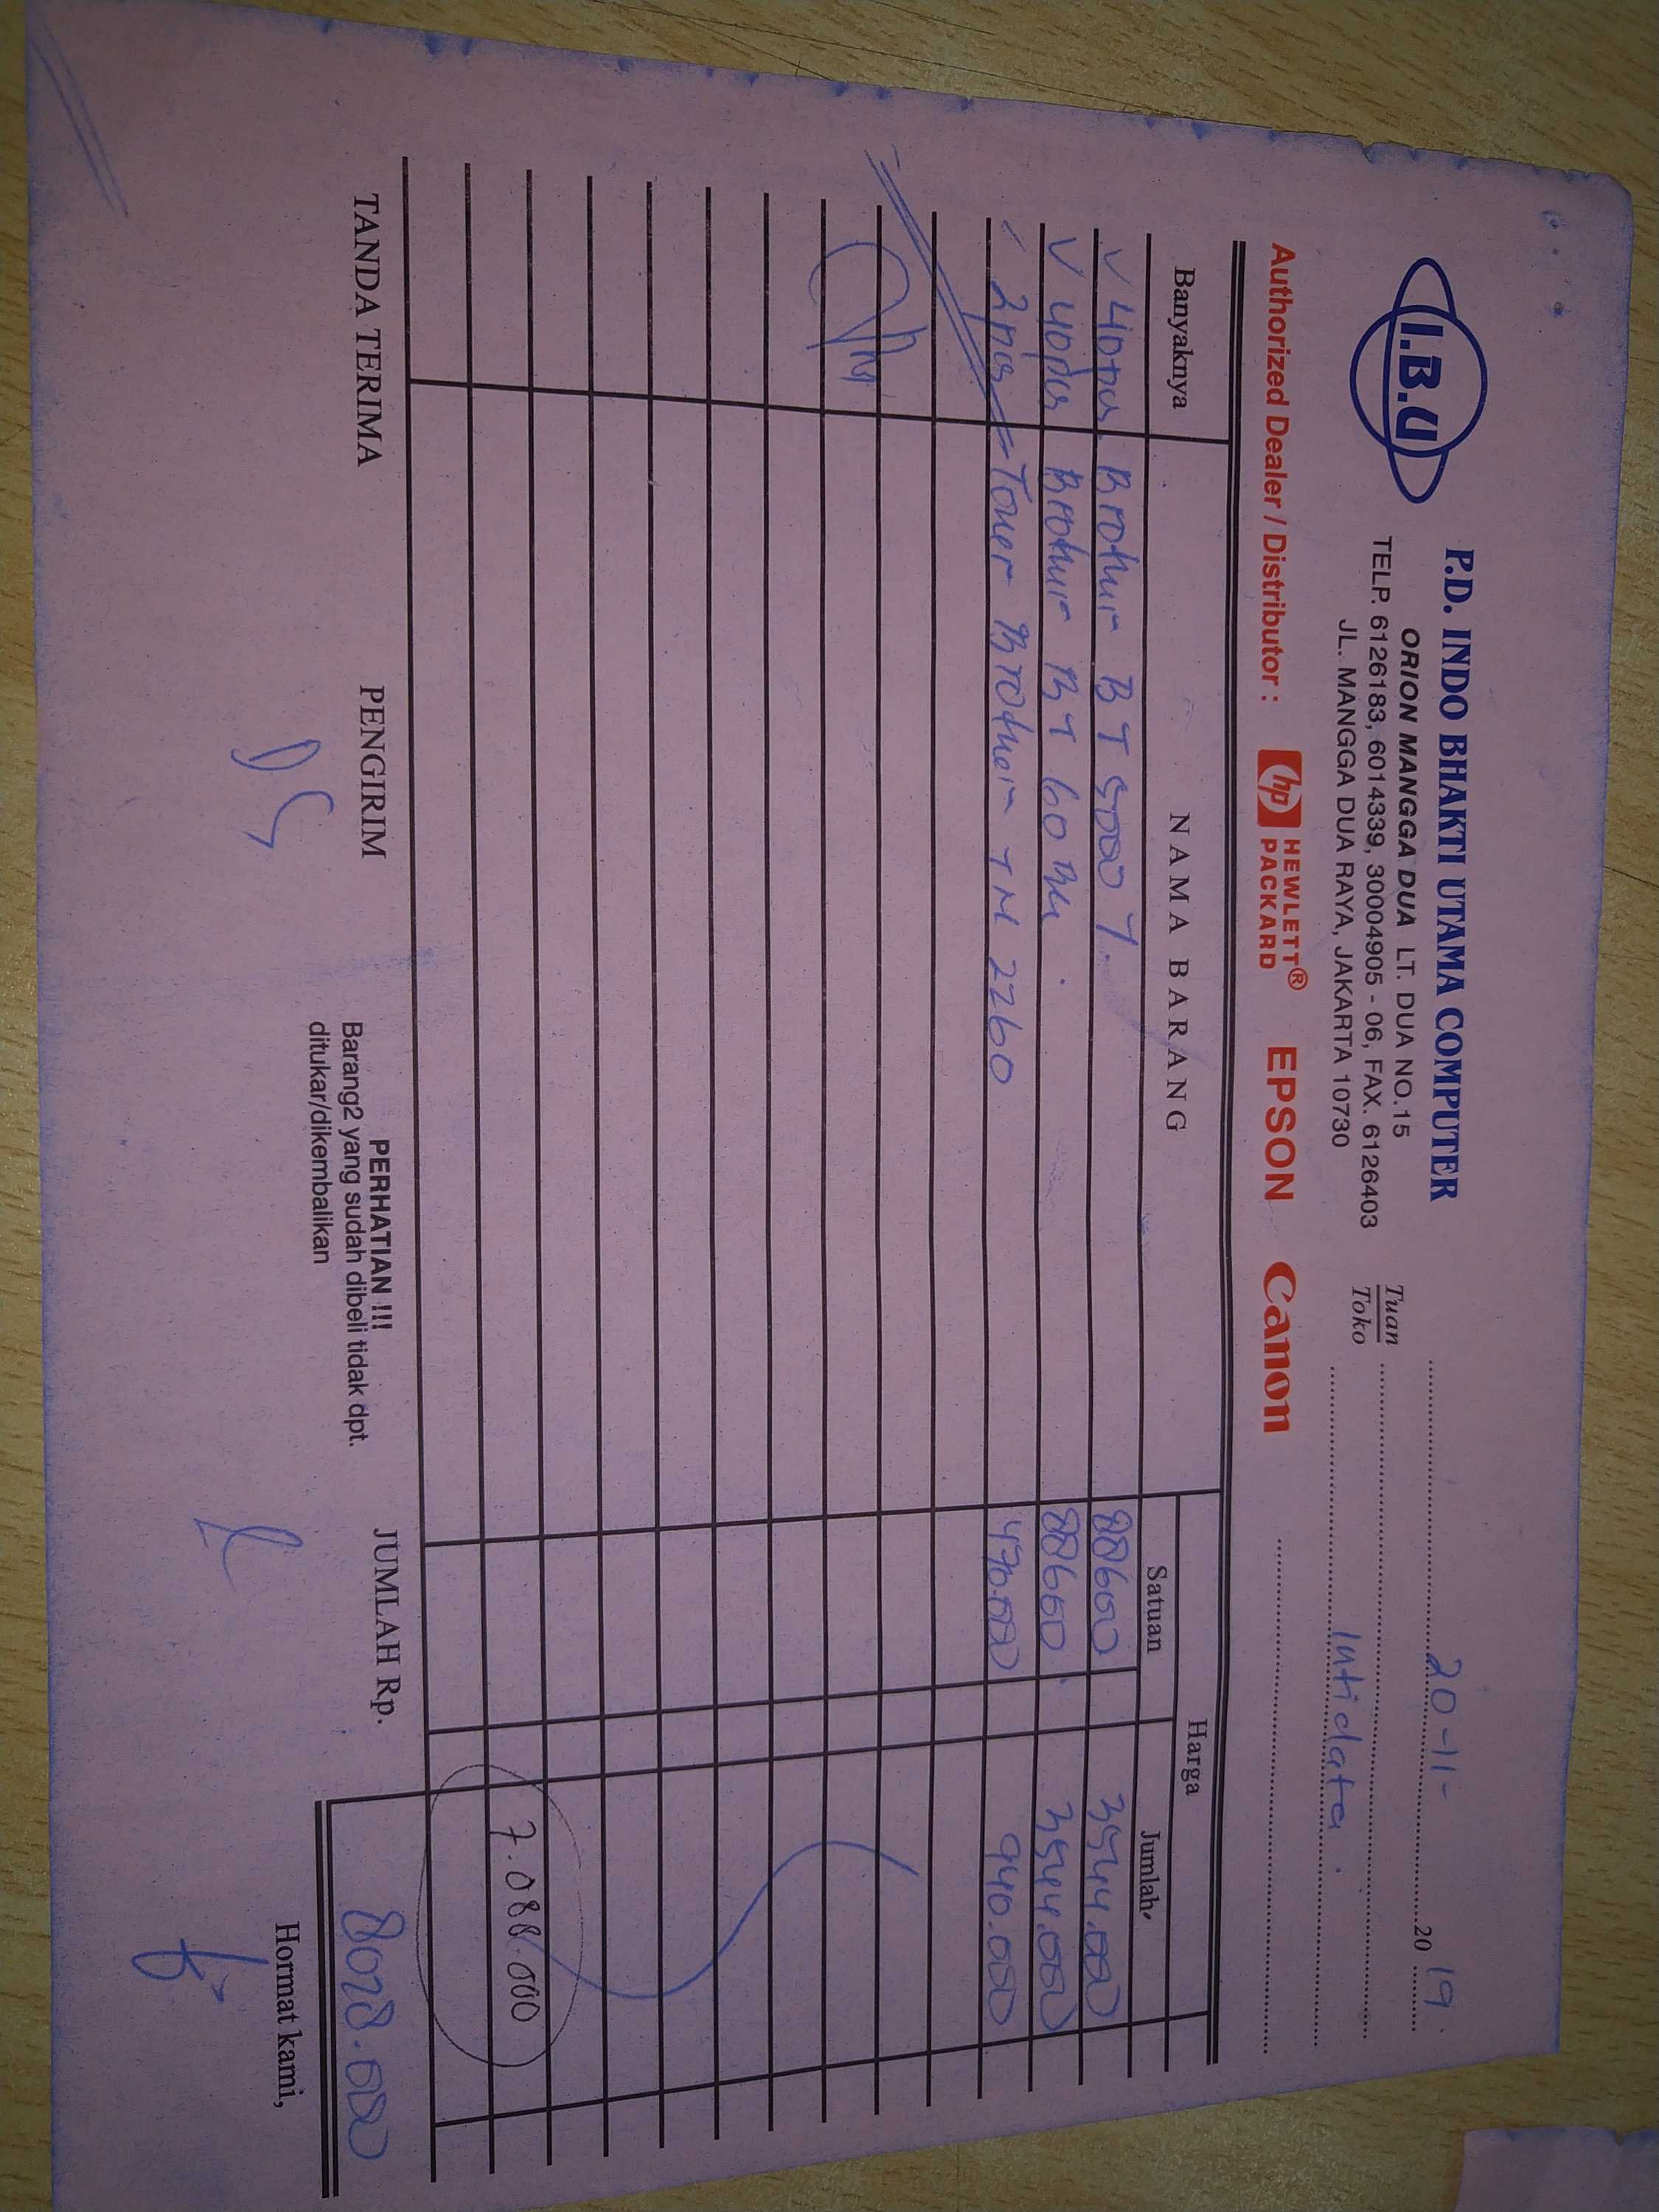 I.B.U
P.D. INDO BHAKTI UTAMA COMPUTER
ORION MANGGA DUA LT. DUA NO.15
TELP. 6126183, 6014339, 30004905 - 06, FAX. 6126403
JL. MANGGA DUA RAYA, JAKARTA 10730
20-11- 2019
Tuan
Toko
Intidata.
Authorized Dealer / Distributor : hp HEWLETT® PACKARD EPSON Canon
Banyaknya NAMA BARANG Harga
Satuan Jumlah
40 pcs Brother BT 5000 Y. 88600 3544.000
40 pcs Brother BT 60 BK. 88600 3544.000
2 pcs Toner Brother TN 2260 470.000 940.000
7.088.000
TANDA TERIMA PENGIRIM PERHATIAN !!! JUMLAH Rp. 8028.000
Barang2 yang sudah dibeli tidak dpt.
ditukar/dikembalikan
Hormat kami,